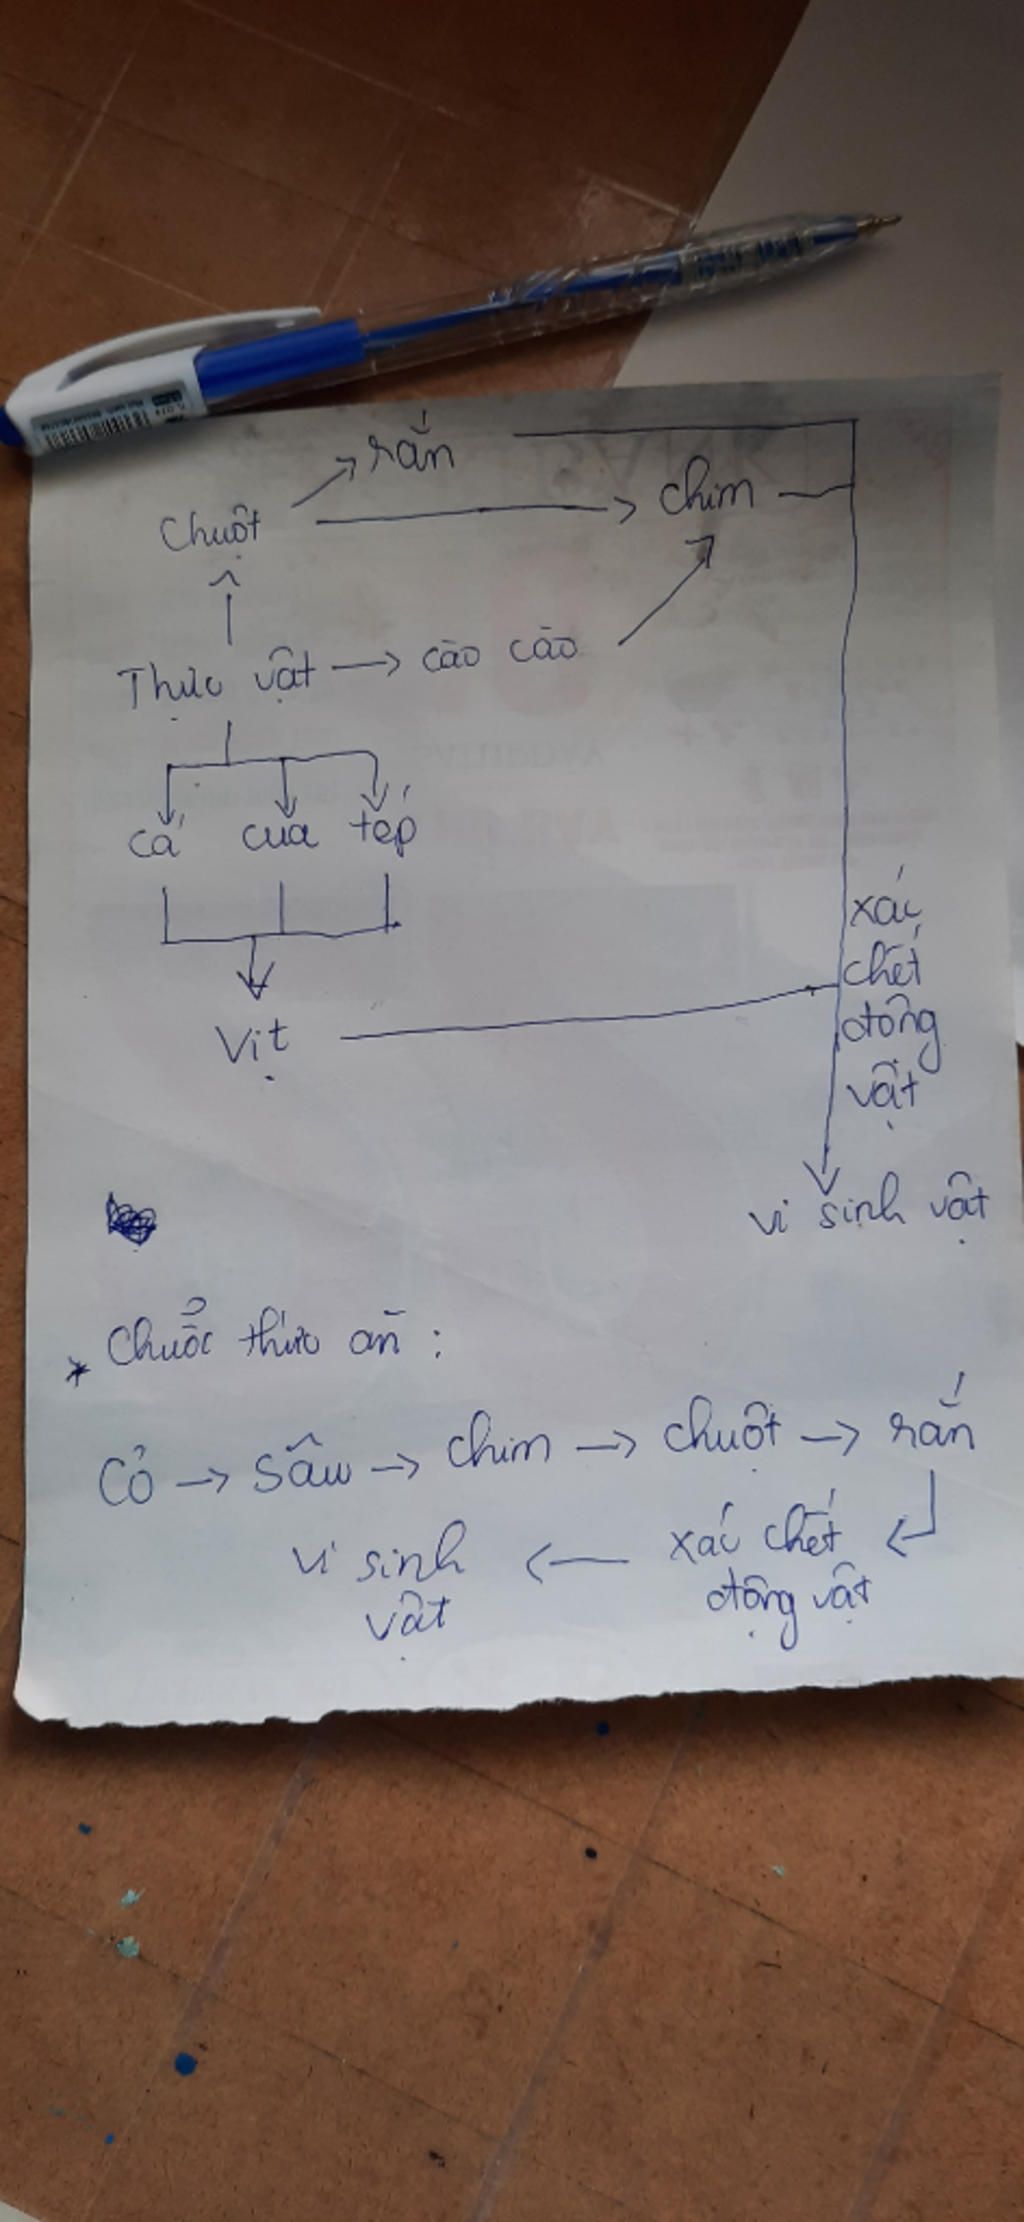 rắn
Chuột → chim
Thực vật → cào cào
cá cua tép
Vịt
xác
chết
động
vật
vi sinh vật
* Chuổi thức ăn :
Cỏ → Sâu → chim → chuột → rắn
vi sinh ← xác chết
vật động vật